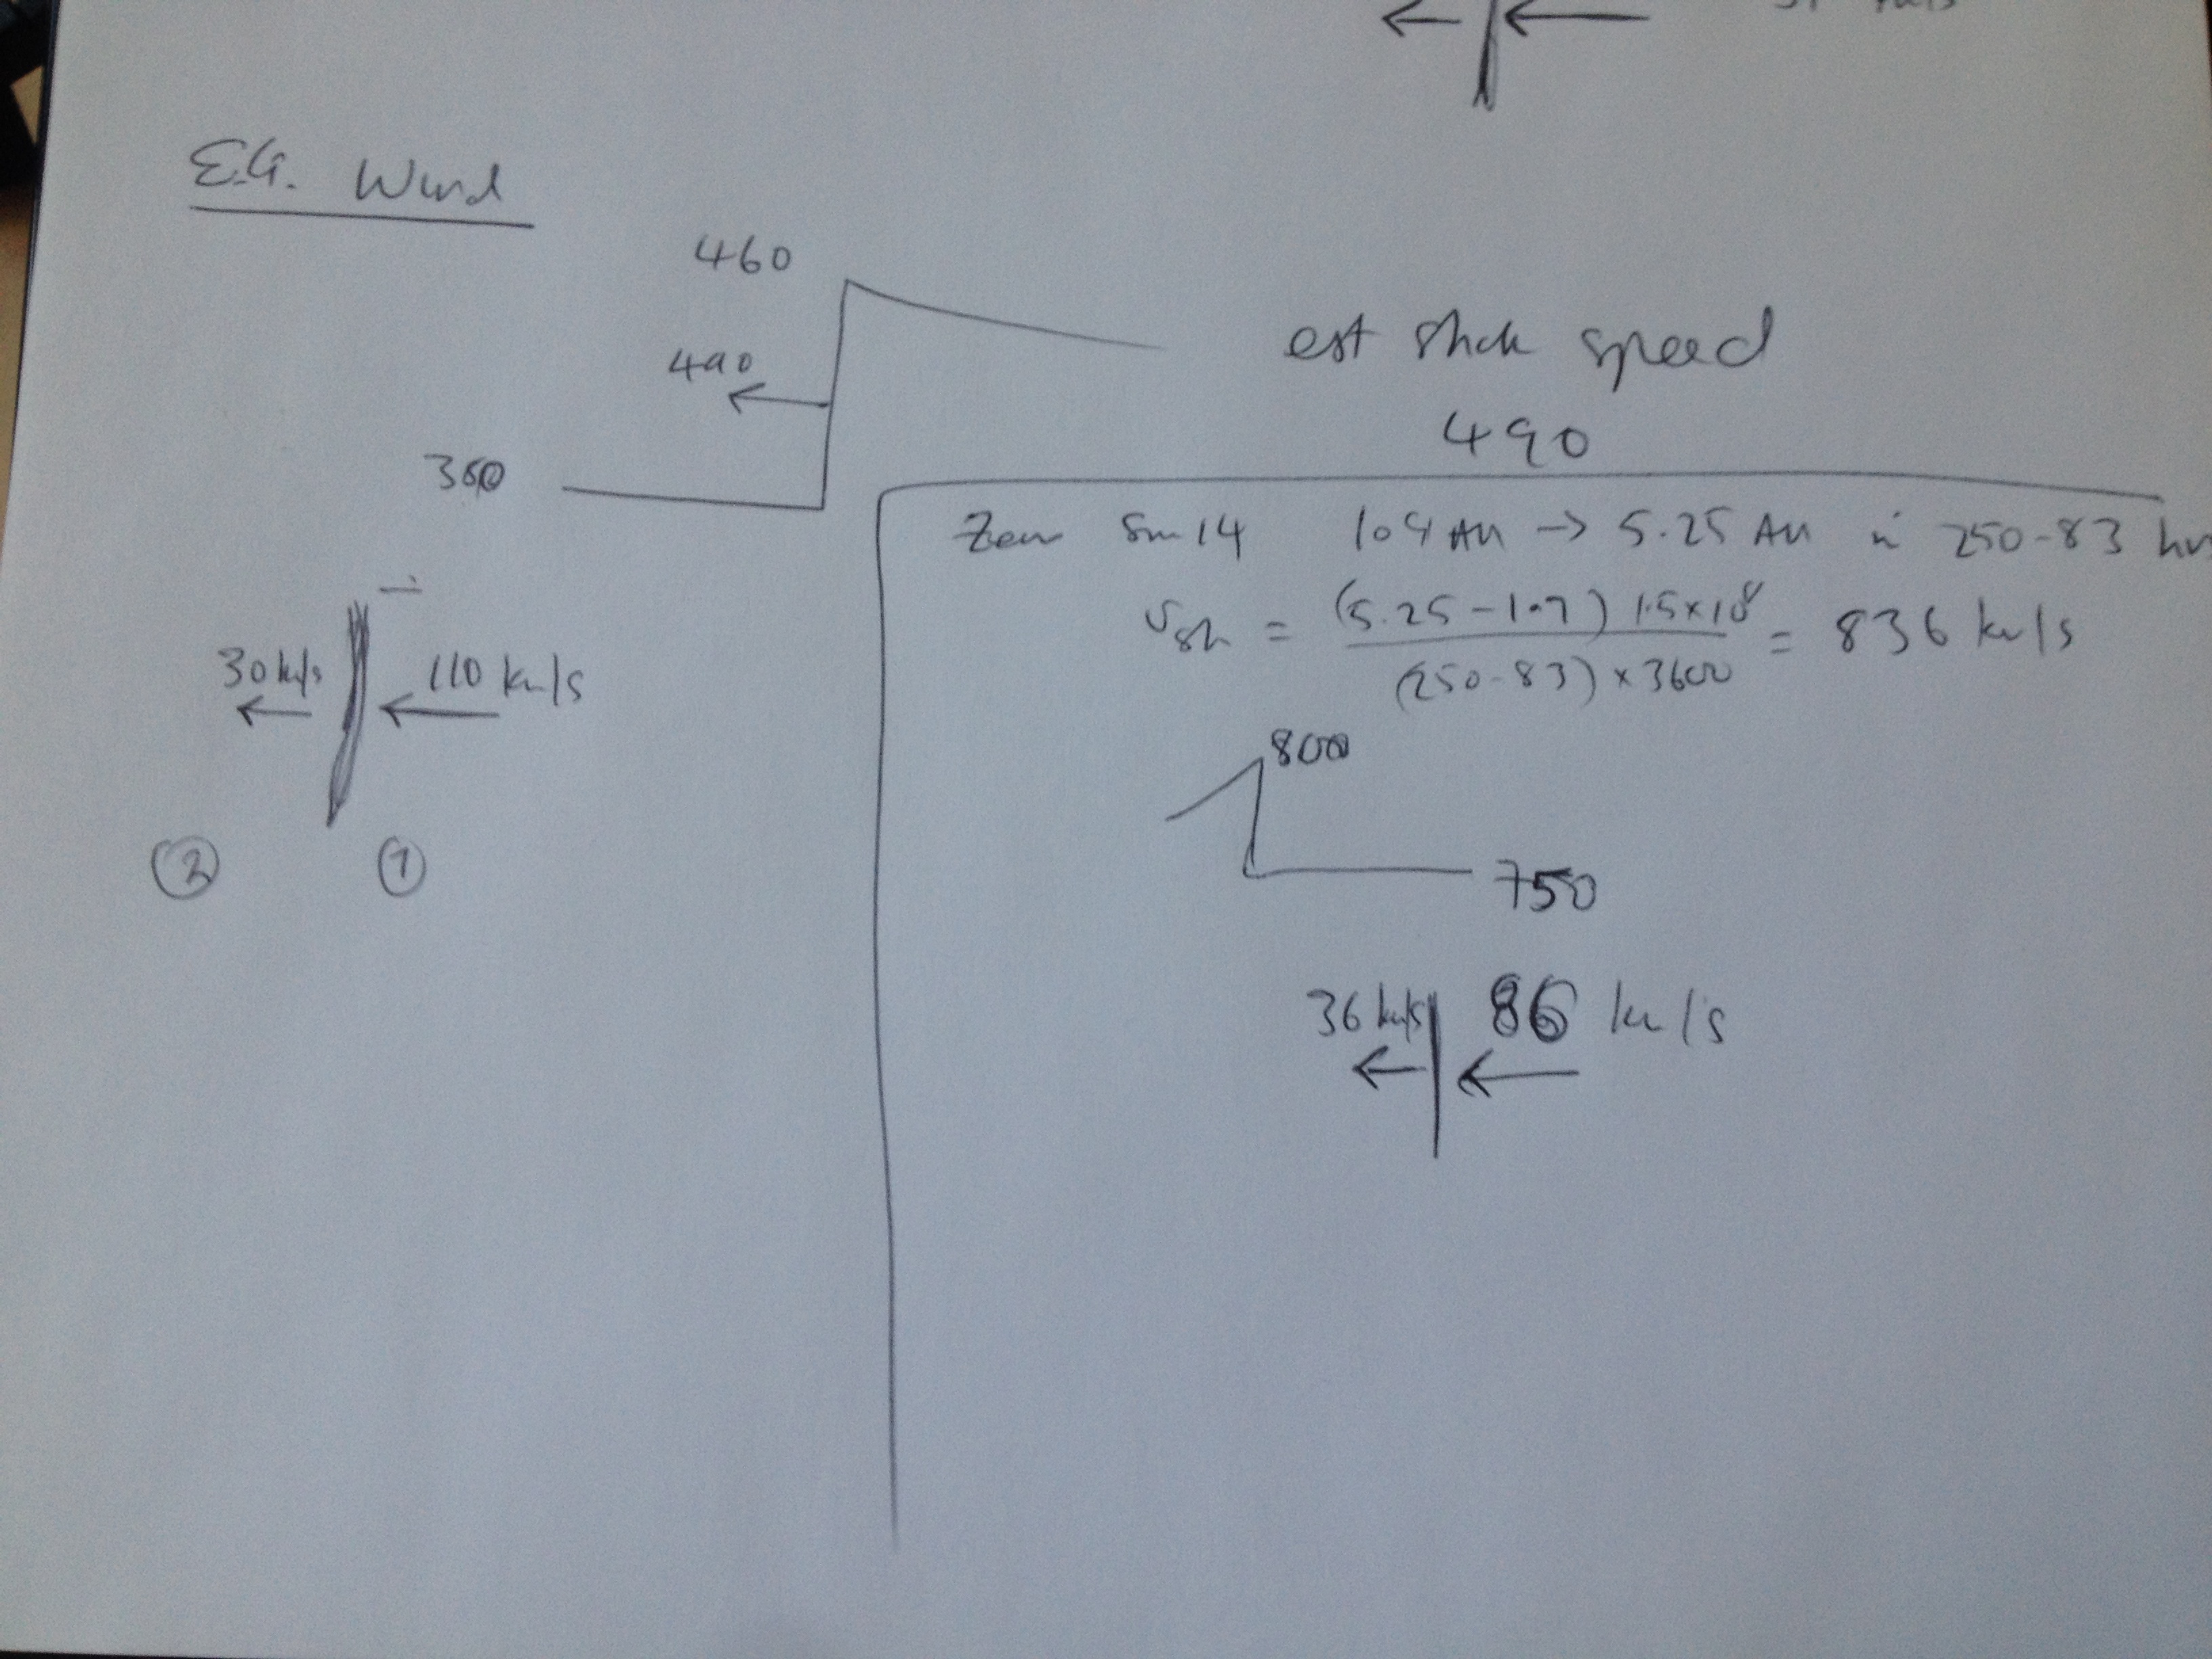 E.G. Wind
460
490
360
est shck speed
490
30 km/s
110 km/s
2
1
Zeus Sm 14 1.09 AU → 5.25 AU in 250-83 hrs
vsh = (5.25 - 1.7) 1.5×10^8 / (250-83) × 3600 = 836 km/s
800
750
36 km/s
86 km/s